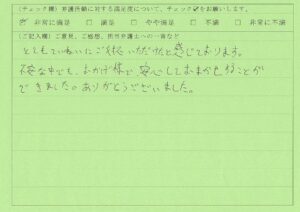 (チェック欄) 弁護活動に対する満足度について、チェック✓をお願いします。
☑ 非常に満足 □ 満足 □ やや満足 □ 不満 □ 非常に不満
(ご記入欄) ご意見、ご感想、担当弁護士への一言など
とてもていねいにご対応いただけたと感じております。
不安な中でも、おかげ様で安心しておまかせすることが
できました。ありがとうございました。